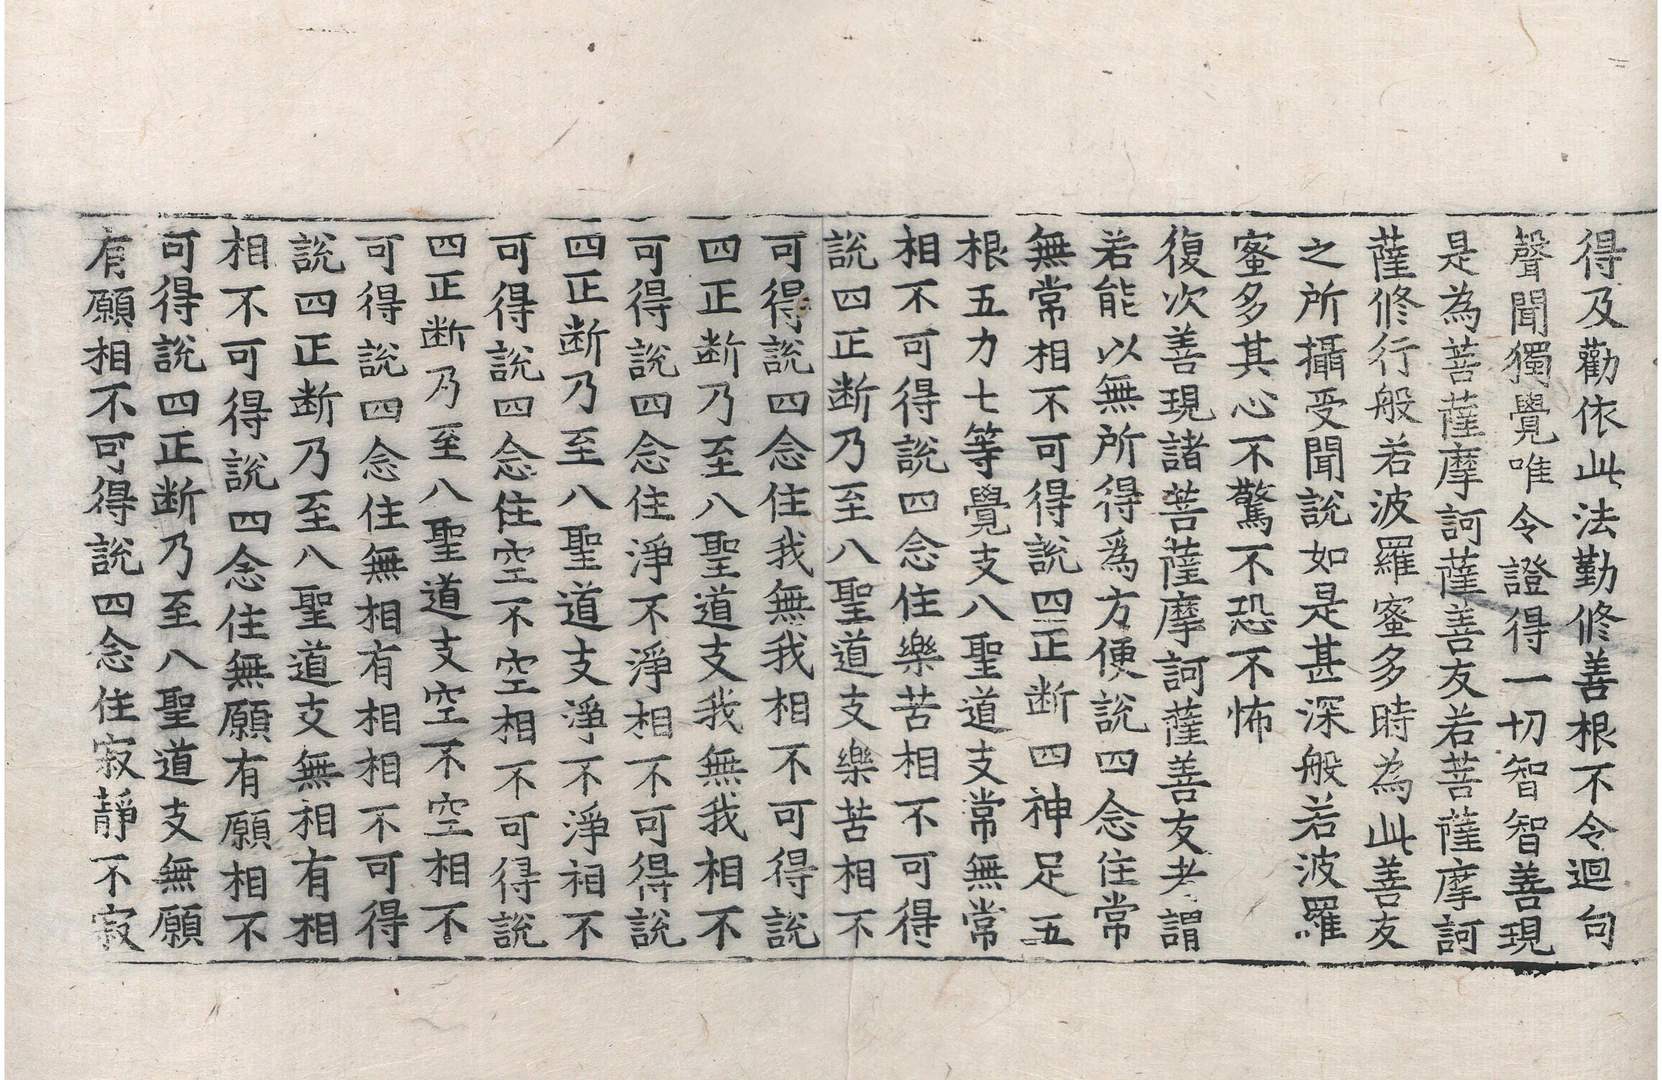 得及勸依此法勤修善根不令迴向
聲聞獨覺唯令證得一切智智善現
是為菩薩摩訶薩善友若菩薩摩訶
薩修行般若波羅蜜多時為此善友
之所攝受聞說如是甚深般若波羅
蜜多其心不驚不恐不怖
復次善現諸菩薩摩訶薩善友者謂
若能以無所得為方便說四念住常
無常相不可得說四正断四神足五
根五力七等覺支八聖道支常無常
相不可得說四念住樂苦相不可得
說四正断乃至八聖道支樂苦相不
可得說四念住我無我相不可得說
四正断乃至八聖道支我無我相不
可得說四念住淨不淨相不可得說
四正断乃至八聖道支淨不淨相不
可得說四念住空不空相不可得說
四正断乃至八聖道支空不空相不
可得說四念住無相有相相不可得
說四正断乃至八聖道支無相有相
相不可得說四念住無願有願相不
可得說四正断乃至八聖道支無願
有願相不可得說四念住寂靜不寂